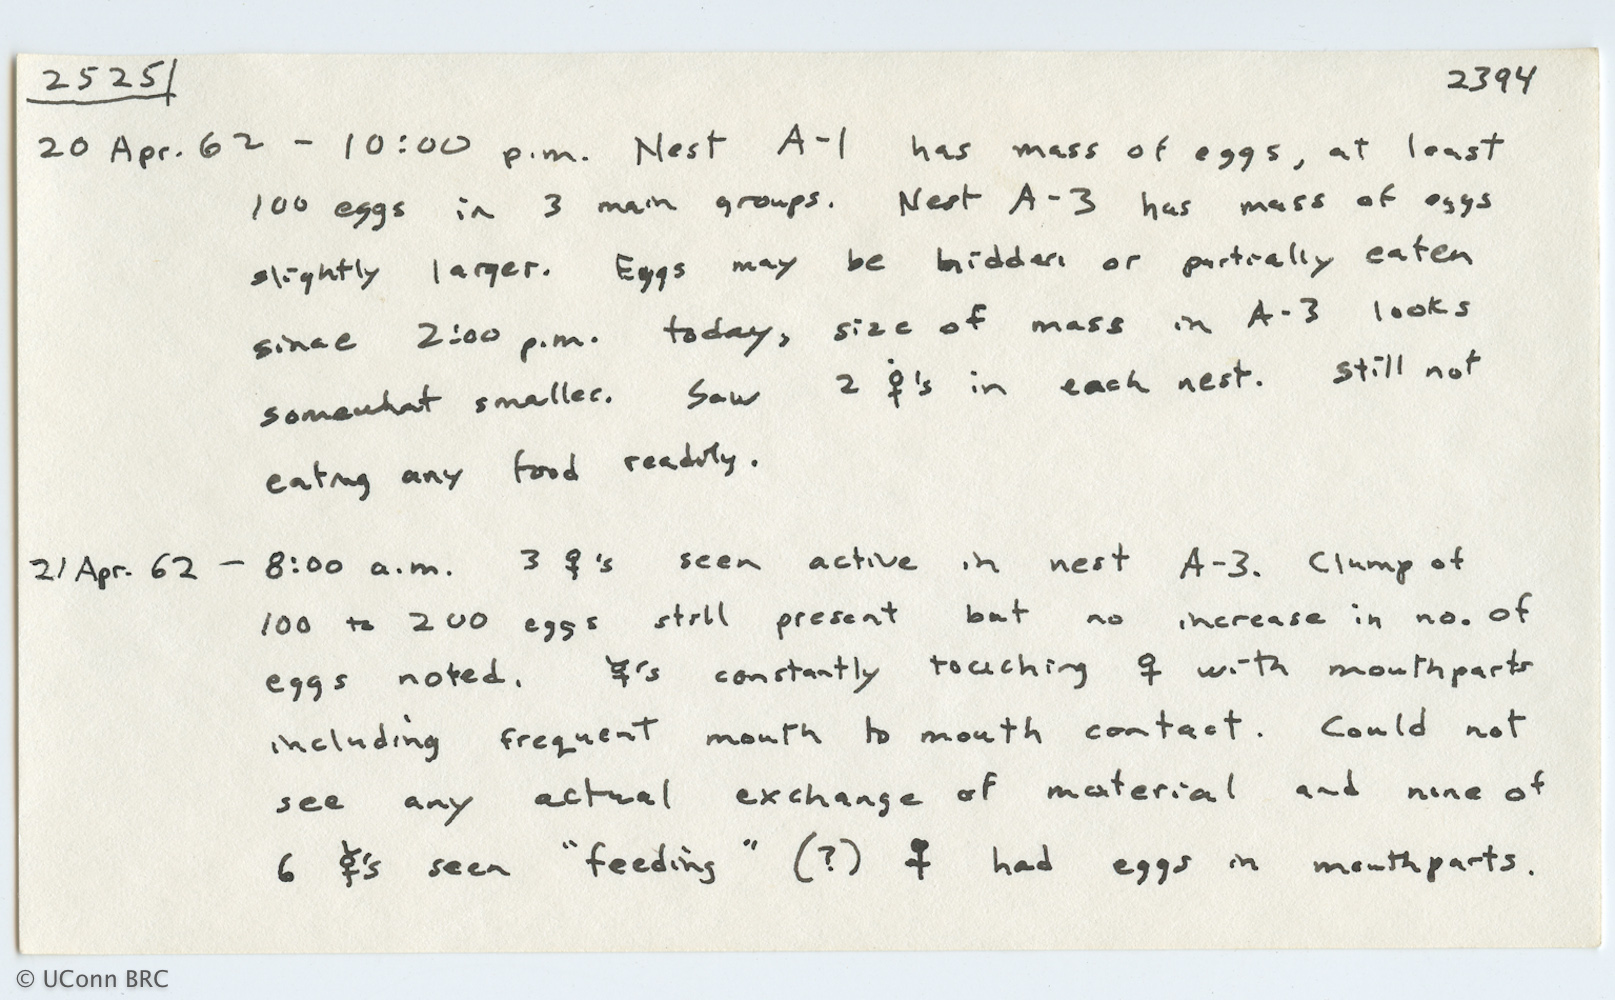 2525 2394
20 Apr. 62 - 10:00 p.m. Nest A-1 has mass of eggs, at least
100 eggs in 3 main groups. Nest A-3 has mass of eggs
slightly larger. Eggs may be hidden or partially eaten
since 2:00 p.m. today, size of mass in A-3 looks
somewhat smaller. Saw 2 ♀'s in each nest. Still not
eating any food readily.
21 Apr. 62 - 8:00 a.m. 3 ♀'s seen active in nest A-3. Clump of
100 to 200 eggs still present but no increase in no. of
eggs noted. ☿'s constantly touching ♀ with mouthparts
including frequent mouth to mouth contact. Could not
see any actual exchange of material and none of
6 ☿'s seen "feeding" (?) ♀ had eggs in mouthparts.
© UConn BRC